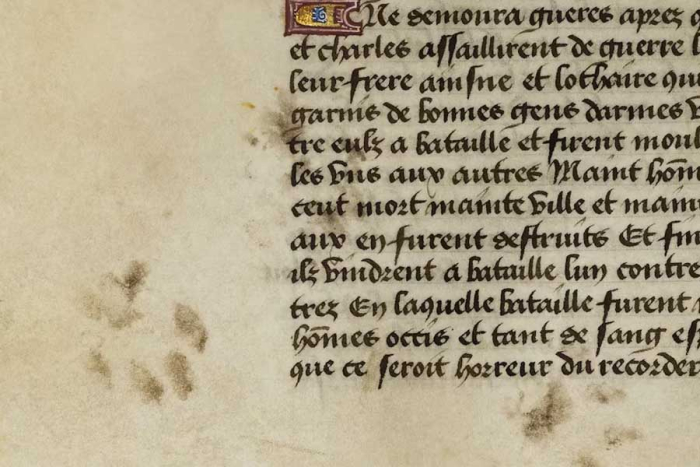 Ne demoura gueres aprez
et charles assaillirent de guerre
leur frere ainsne et lothaire
garnis de bonnes gens darmes
tre eulz a bataille et firent
les vns aux autres Maint hōm
ceut mort mainte ville et
aux en furent destruits Et
ilz vindrent a bataille lun contre
trez En laquelle bataille furent
hōmes occis et tant de sang
que ce seroit horreur du recorder